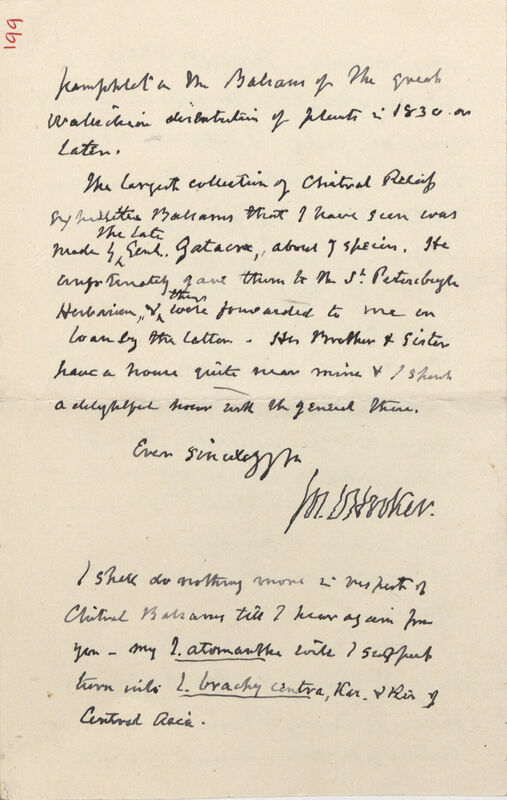 199
pamphlet on the Balsams of the great
Wallichian distribution of plants in 1830 or
later.
The largest collection of Chitral Relief
expedition Balsams that I have seen was
made by the late Genl. Gatacre, about 7 species. He
unfortunately gave them to the St. Petersburgh
Herbarium, & these were forwarded to me on
loan by the latter. His Brother & Sister
have a house quite near mine & I spent
a delightful hour with the general there.
Ever sincerely yrs
J.D. Hooker.
I shall do nothing more in respect of
Chitral Balsams till I hear again from
you – my I. atomantha will I suspect
turn into I. brachycentra, Kar. & Kir of
Central Asia.